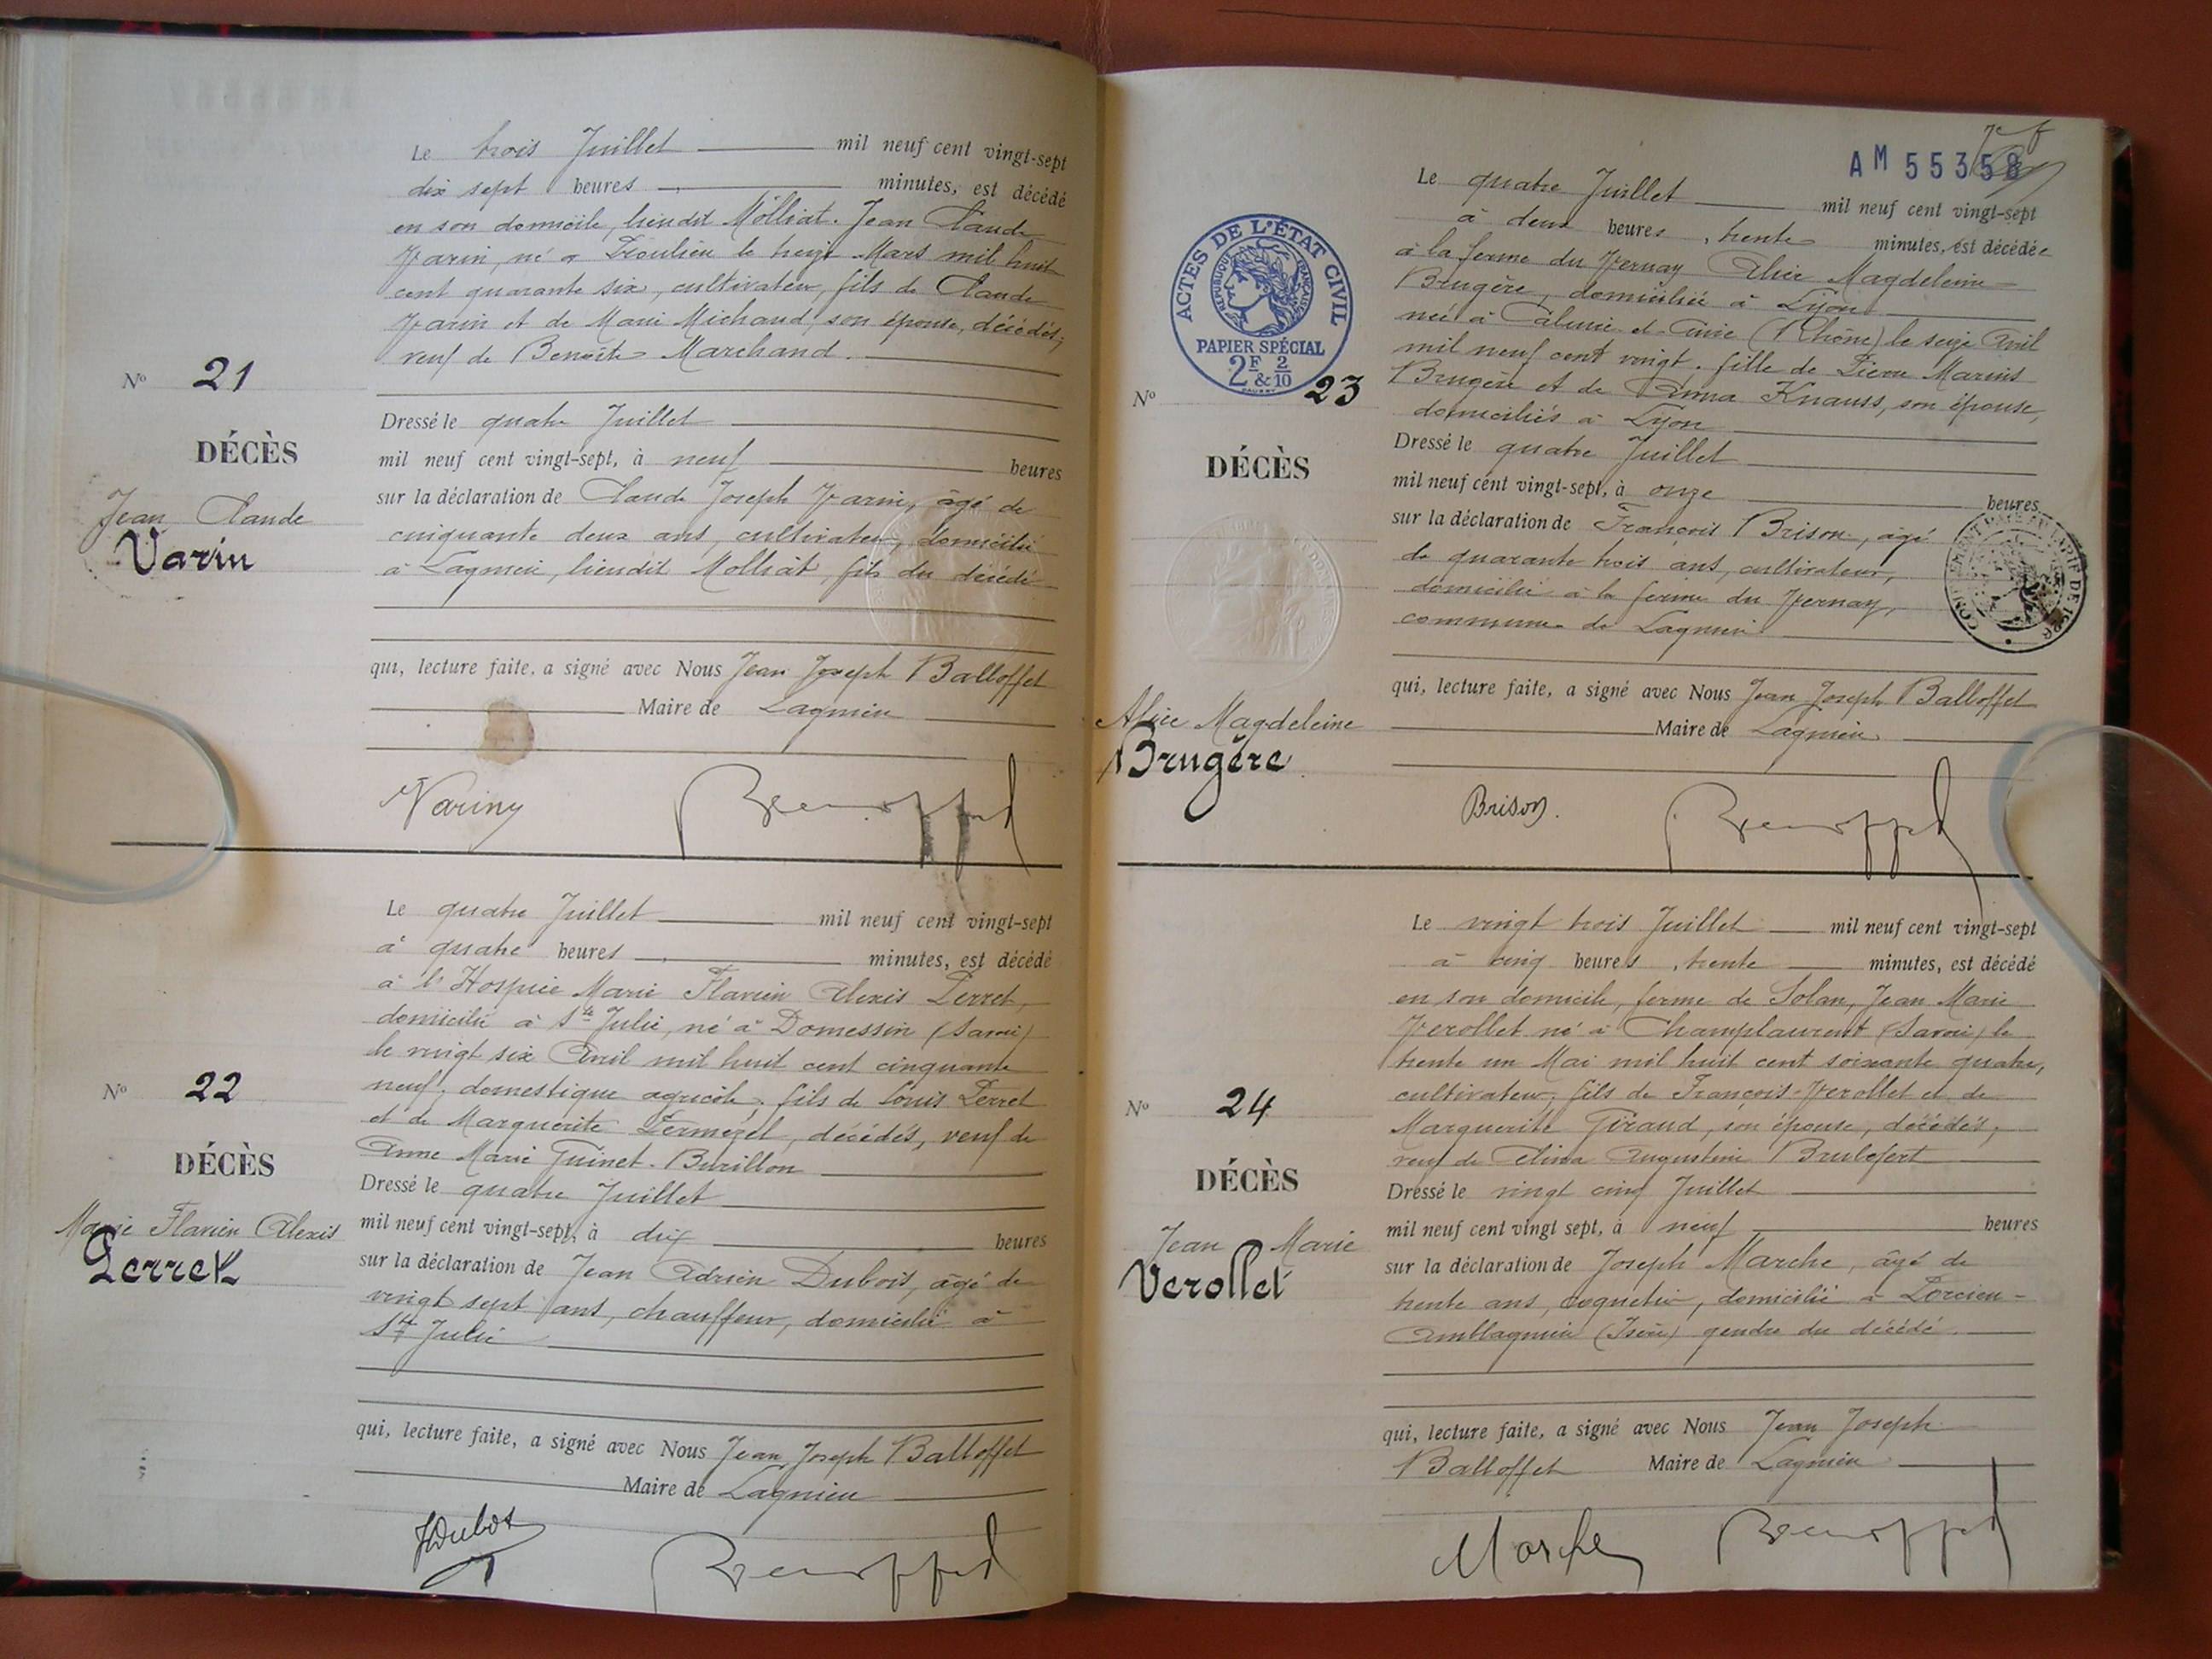 Le trois Juillet mil neuf cent vingt-sept
dix sept heures minutes, est décédé
en son domicile, lieudit Molliat. Jean Claude
Varin, né à le treize Mars mil huit
cent quarante six, cultivateur, fils de Claude
Varin et de Marie Michaud, son épouse, décédés;
veuf de Benoîte Marchand.
N° 21
DÉCÈS
Jean Claude
Varin
Dressé le quatre Juillet
mil neuf cent vingt-sept, à neuf heures
sur la déclaration de Claude Joseph Varin, âgé de
cinquante deux ans, cultivateur, domicilié
à Lagnieu, lieudit Molliat, fils du décédé
qui, lecture faite, a signé avec Nous Jean Joseph Balloffet
Maire de Lagnieu
Variny
Le quatre Juillet mil neuf cent vingt-sept
à quatre heures minutes, est décédé
à l'Hospice Marie Flavien Alexis Perret,
domicilié à Ste Julie, né à Domessin (Savoie)
le vingt six Avril mil huit cent cinquante
neuf, domestique agricole, fils de Louis Perret
et de Marguerite Permezel, décédés, veuf de
Anne Marie Guinet-Burillon
N° 22
DÉCÈS
Marie Flavien Alexis
Perret
Dressé le quatre Juillet
mil neuf cent vingt-sept, à dix heures
sur la déclaration de Jean Adrien Dubois, âgé de
vingt sept ans, chauffeur, domicilié à
Ste Julie
qui, lecture faite, a signé avec Nous Jean Joseph Balloffet
Maire de Lagnieu
JDubois
AM 55358
ACTES DE L'ÉTAT CIVIL
RÉPUBLIQUE FRANÇAISE
PAPIER SPÉCIAL
2F 2
& 10
Le quatre Juillet mil neuf cent vingt-sept
à deux heures, trente minutes, est décédée
à la ferme du Vernay Alice Magdeleine
Brugère, domiciliée à Lyon
née à Caluire-et-Cuire (Rhône) le seize Avril
mil neuf cent vingt. fille de Pierre Marius
Brugère et de Anna Knauss, son épouse,
domiciliés à Lyon
N° 23
DÉCÈS
Alice Magdeleine
Brugère
Dressé le quatre Juillet
mil neuf cent vingt-sept, à onze heures
sur la déclaration de François Brison, âgé
de quarante trois ans, cultivateur,
domicilié à la ferme du Vernay,
commune de Lagnieu
qui, lecture faite, a signé avec Nous Jean Joseph Balloffet
Maire de Lagnieu
Brison.
Le vingt trois Juillet mil neuf cent vingt-sept
à cinq heures, trente minutes, est décédé
en son domicile, ferme de Solan, Jean Marie
Verollet né à Champlaurent (Savoie) le
trente un Mai mil huit cent soixante quatre,
cultivateur, fils de François Verollet et de
Marguerite Giraud, son épouse, décédés;
veuf de Célina Augustine Brulefert
N° 24
DÉCÈS
Jean Marie
Verollet
Dressé le vingt cinq Juillet
mil neuf cent vingt sept, à neuf heures
sur la déclaration de Joseph Marche, âgé de
trente ans, coquetier, domicilié à Porcieu-
Amblagnieu (Isère) gendre du décédé.
qui, lecture faite, a signé avec Nous Jean Joseph
Balloffet Maire de Lagnieu
Marche